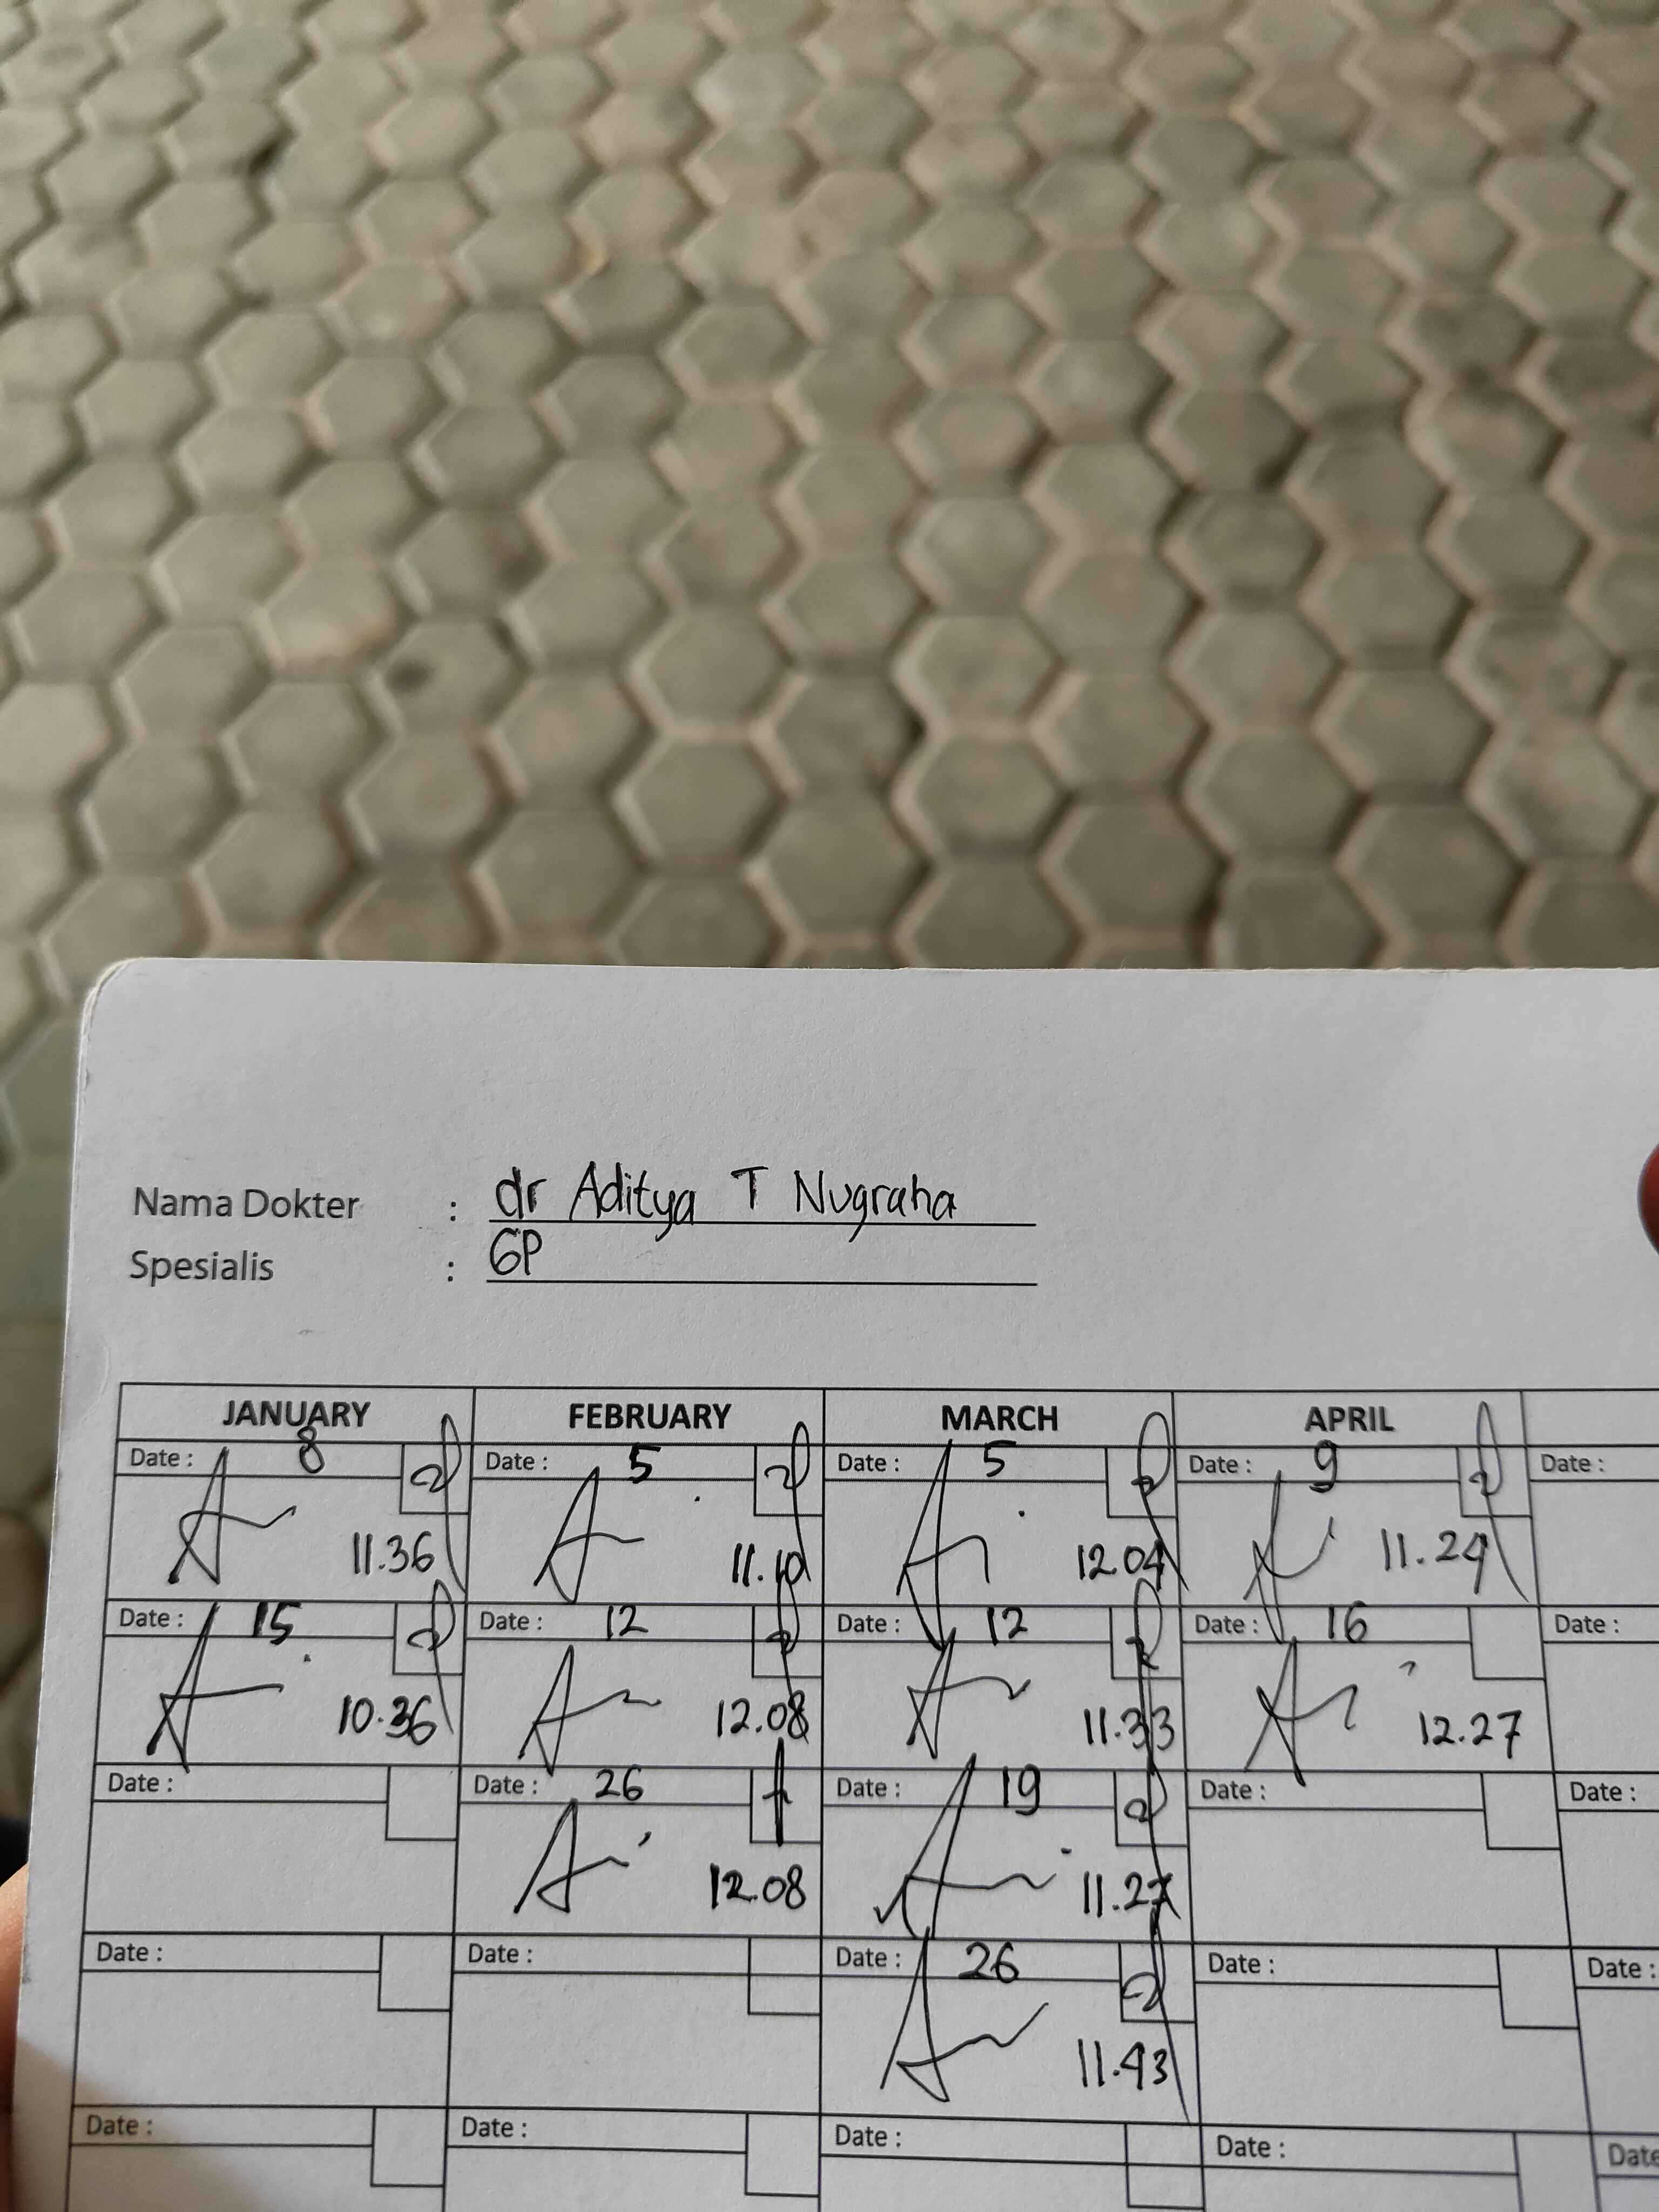 Nama Dokter : dr Aditya T Nugraha
Spesialis : GP
JANUARY FEBRUARY MARCH APRIL
Date : 8 Date : 5 Date : 5 Date : 9 Date :
11.36 11.10 12.04 11.24
Date : 15 Date : 12 Date : 12 Date : 16 Date :
10.36 12.08 11.33 12.27
Date : Date : 26 Date : 19 Date : Date :
12.08 11.27
Date : Date : Date : 26 Date : Date :
11.43
Date : Date : Date : Date : Date